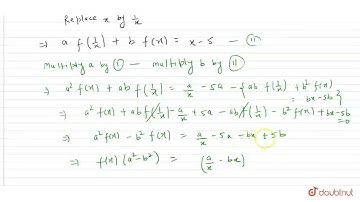 Replace x by 1/x
⇒ a f(1/x) + b f(x) = x - 5 — (ii)
Multiply a by (i) — multiply b by (ii)
⇒ a² f(x) + ab f(1/x) = a/x - 5a - {ab f(1/x) + b² f(x)
= bx - 5b}
⇒ a² f(x) + ab f(1/x) - a/x + 5a - ab f(1/x) - b² f(x) + bx - 5b
= 0
⇒ a² f(x) - b² f(x) = a/x - 5a - bx + 5b
⇒ f(x) (a² - b²) = (a/x - bx)
doubtnut